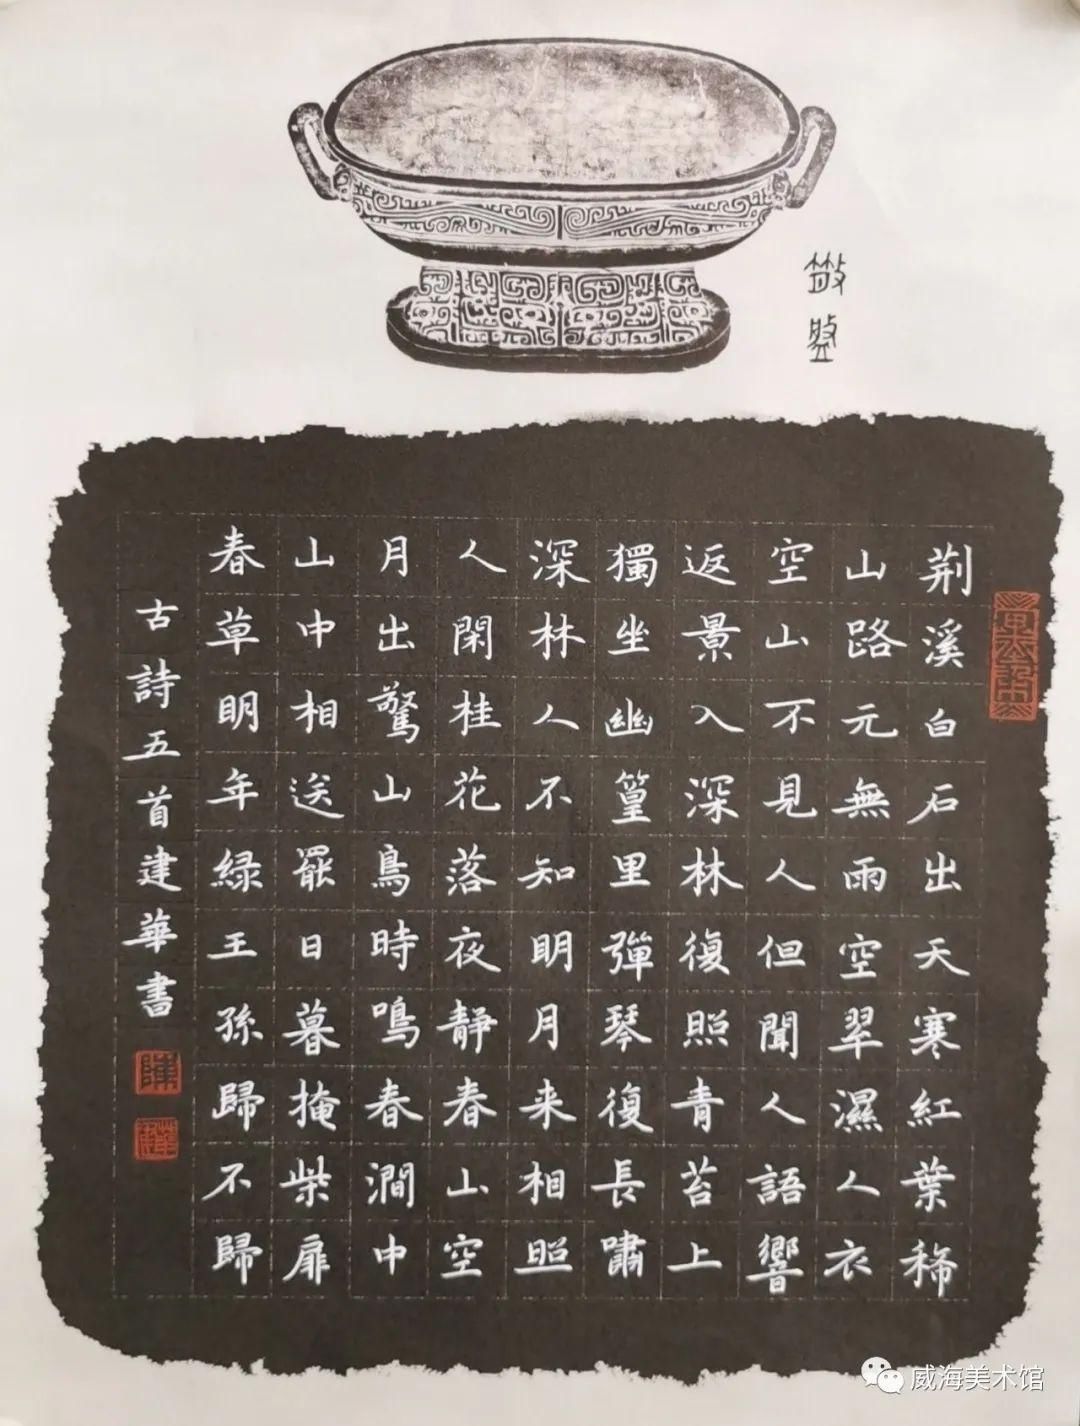 荆溪白石出天寒紅葉稀
山路元無雨空翠濕人衣
空山不見人但聞人語響
返景入深林復照青苔上
獨坐幽篁里彈琴復長嘯
深林人不知明月来相照
人閑桂花落夜静春山空
月出驚山鳥時鳴春澗中
山中相送罷日暮掩柴扉
春草明年緑王孫歸不歸
古詩五首建華書
威海美术馆